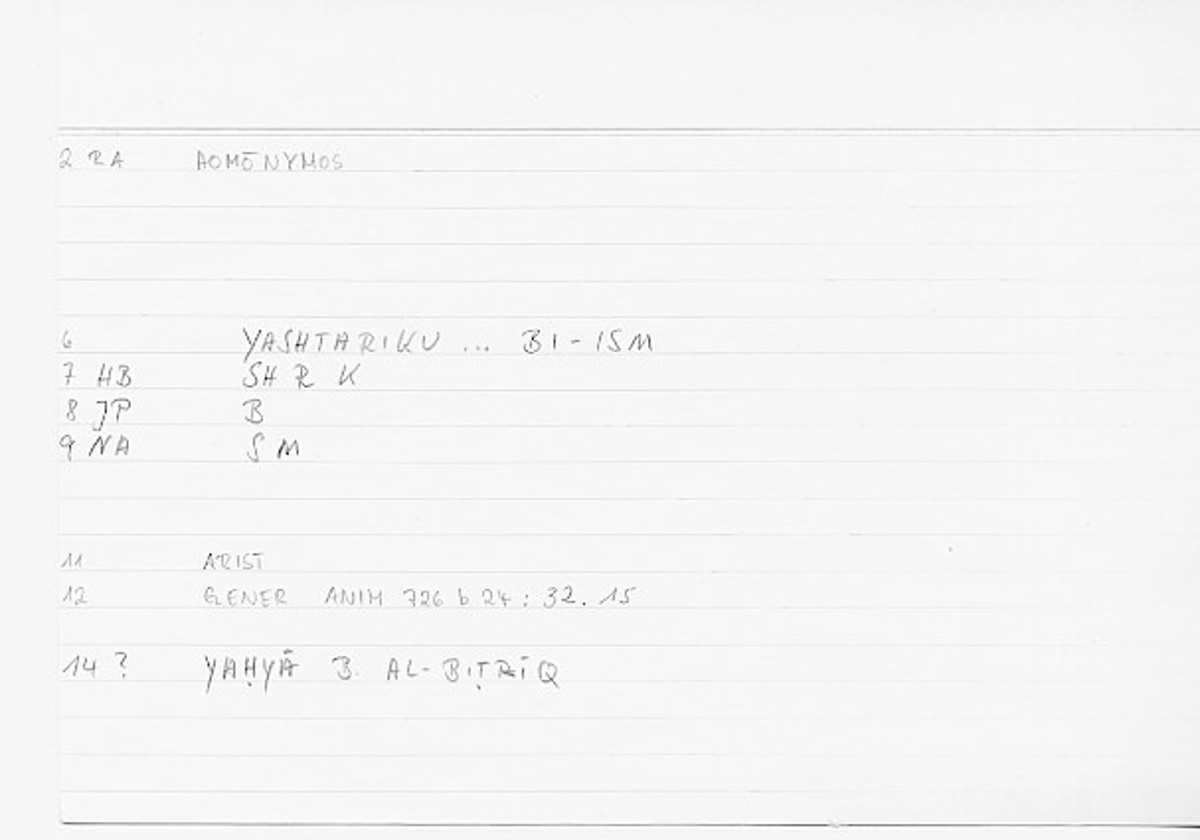 2 RA AOMŌNYMOS
6 YASHTARIKU ... BI-ISM
7 HB SH R K
8 JP B
9 NA S M
11 ARIST
12 GENER ANIM 726 b 24 : 32. 15
14 ? YAḤYĀ B. AL-BIṬRĪQ